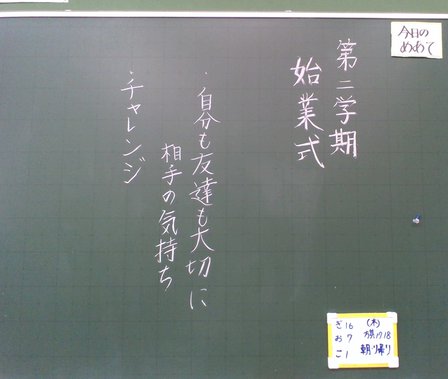 今日の
めあて
第二学期
始業式
・自分も友達も大切に
相手の気持ち
・チャレンジ
ぎ16 (木)
お7 旗17.18
こ1 朝り帰り